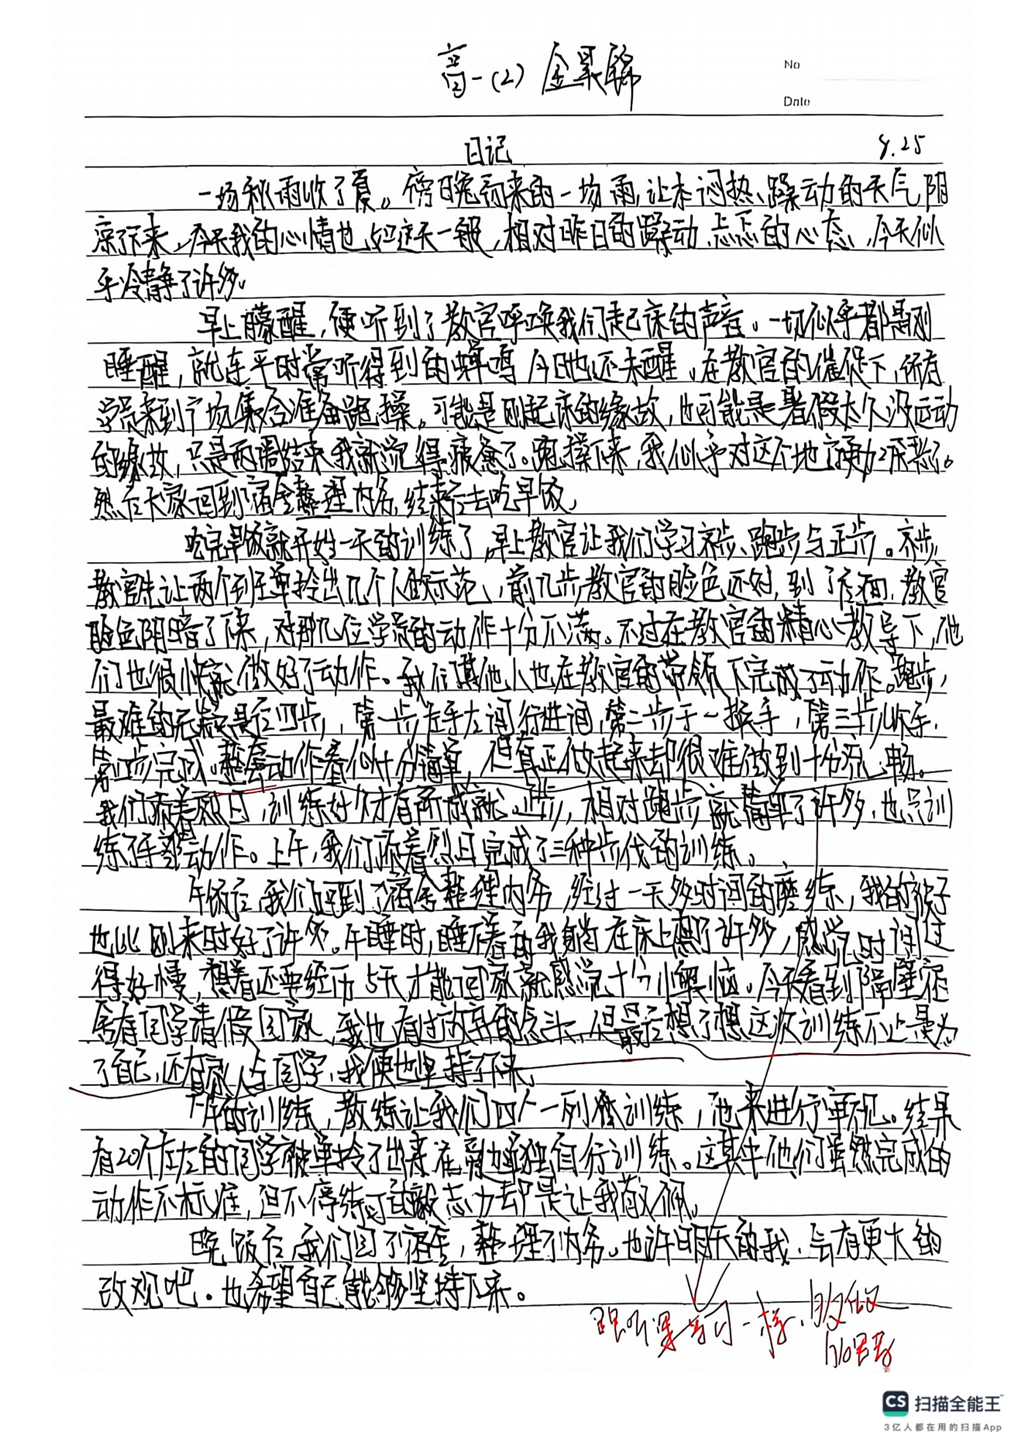 高一(2) 金
No
Date
日记 8.25
一场秋雨收了夏。傍晚而来的一场雨,让本闷热、躁动的天气阴
凉下来。今天我的心情也如这天一般,相对昨日的躁动、忐忑的心态,今天似
乎冷静了许多。
早上朦醒,便听到了教官呼唤我们起床的声音。一切似乎都是刚
睡醒,就连平时常听得到的蝉鸣今日也还未醒。在教官的催促下,所有
学员来到广场集合准备跑操。可能是刚起床的缘故,也可能是暑假太久没运动
的缘故,只是两圈结束我就觉得疲惫了。跑操下来,我似乎对这个地方更加熟悉了。
然后大家回到宿舍整理内务,结束后去吃早饭。
吃完早饭就开始一天的训练了,早上教官让我们学习齐步、跑步与正步。齐步,
教官先让两个班单拎出几个人做示范,前几步教官的脸色还好,到了后面,教官
脸色阴暗了下来,对那几位学员的动作十分不满。不过在教官的精心教导下,他
们也很快就做好了动作。我们其他人也在教官的带领下完成了动作。跑步,
最难的无疑是立定四步,第一步左手左间行进间,第二步于一换手,第三步收手,
第四步完成。整套动作看似十分简单,但真正做起来却很难做到十分流畅。
我们顶着烈日,训练好久才有所成就。正步,相对跑步就简单了许多,也只训
练了手部动作。上午,我们顶着烈日完成了三种步伐的训练。
午饭后,我们回到了宿舍整理内务,经过一天多时间的磨练,我的被子
也比刚来时好了许多。午睡时,睡不着的我躺在床上想了许多,感觉时间过
得好慢,想着还要经历5天才能回家就感觉十分小懊恼。今天看到隔壁宿
舍有同学请假回家,我也有过放弃的念头,但最后想了想这次训练不止是为
了自己,还有家人与同学,我便也坚持了下来。
下午的训练,教练让我们四个一列做训练,他来进行审视。结果
有20个左右的同学被单拎了出来在旁边单独自行训练。这其中他们虽然完成的
动作不标准,但不停练习的毅志力却是让我敬佩。
晚饭后,我们回了宿舍,整理了内务。也许明天的我,会有更大的
改观吧。也希望自己能够坚持下来。
跟听课学习一样,
加强
CS 扫描全能王
3亿人都在用的扫描App